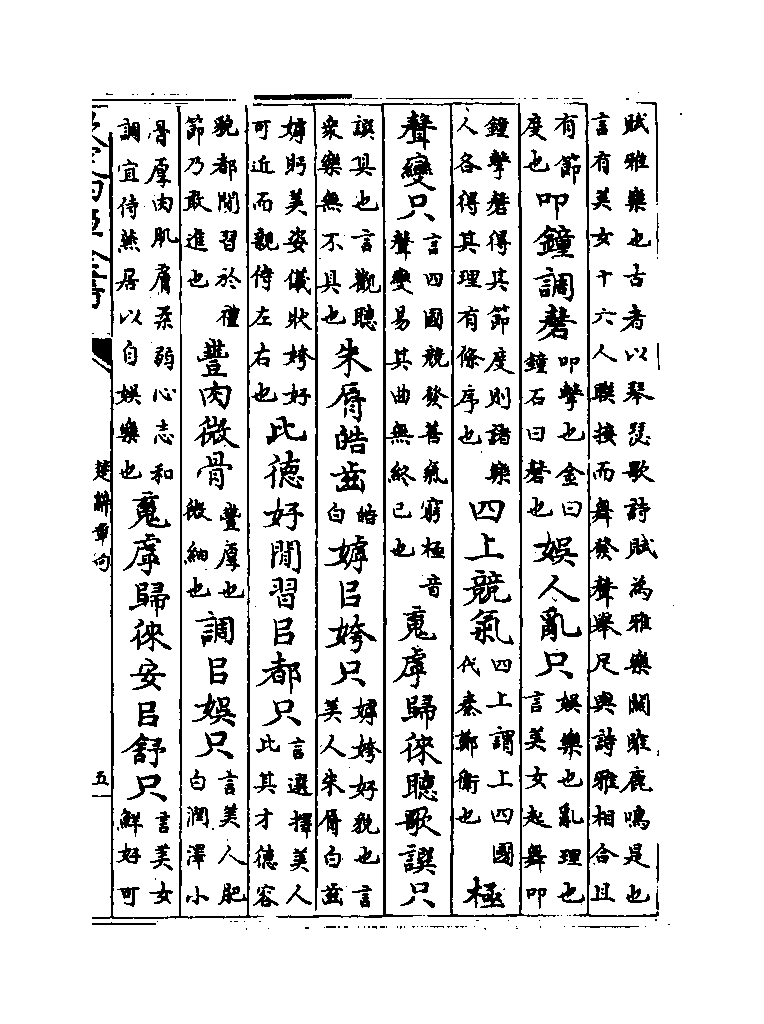 賦雅樂也古者以琴瑟歌詩賦為雅樂關雎鹿鳴是也言有美女十六人聯接而舞發聲舉足與詩雅相合且
有節度也叩鐘調磬叩擊也金曰鐘石曰磬也娛人亂只娛樂也亂理也言美女起舞叩
鐘擊磬得其節度則諸樂人各得其理有條序也四上競氣四上謂上四國代秦鄭衛也極
聲變只言四國競發善氣窮極音聲變易其曲無終已也䰟虖歸徠聽歌譔只
譔具也言觀聽衆樂無不具也朱脣皓齒皓白嫭㠯姱只嫭姱好貌也言美人朱脣白齒
嫭眄美姿儀狀姱好可近而親侍左右也比德好閒習㠯都只言選擇美人比其才德容
貌都閒習於禮節乃敢進也豐肉微骨豐厚也微細也調㠯娛只言美人肥白潤澤小
骨厚肉肌膚柔弱心志和調宜侍燕居以自娛樂也䰟虖歸徠安㠯舒只言美女鮮好可
楚辭章句
五